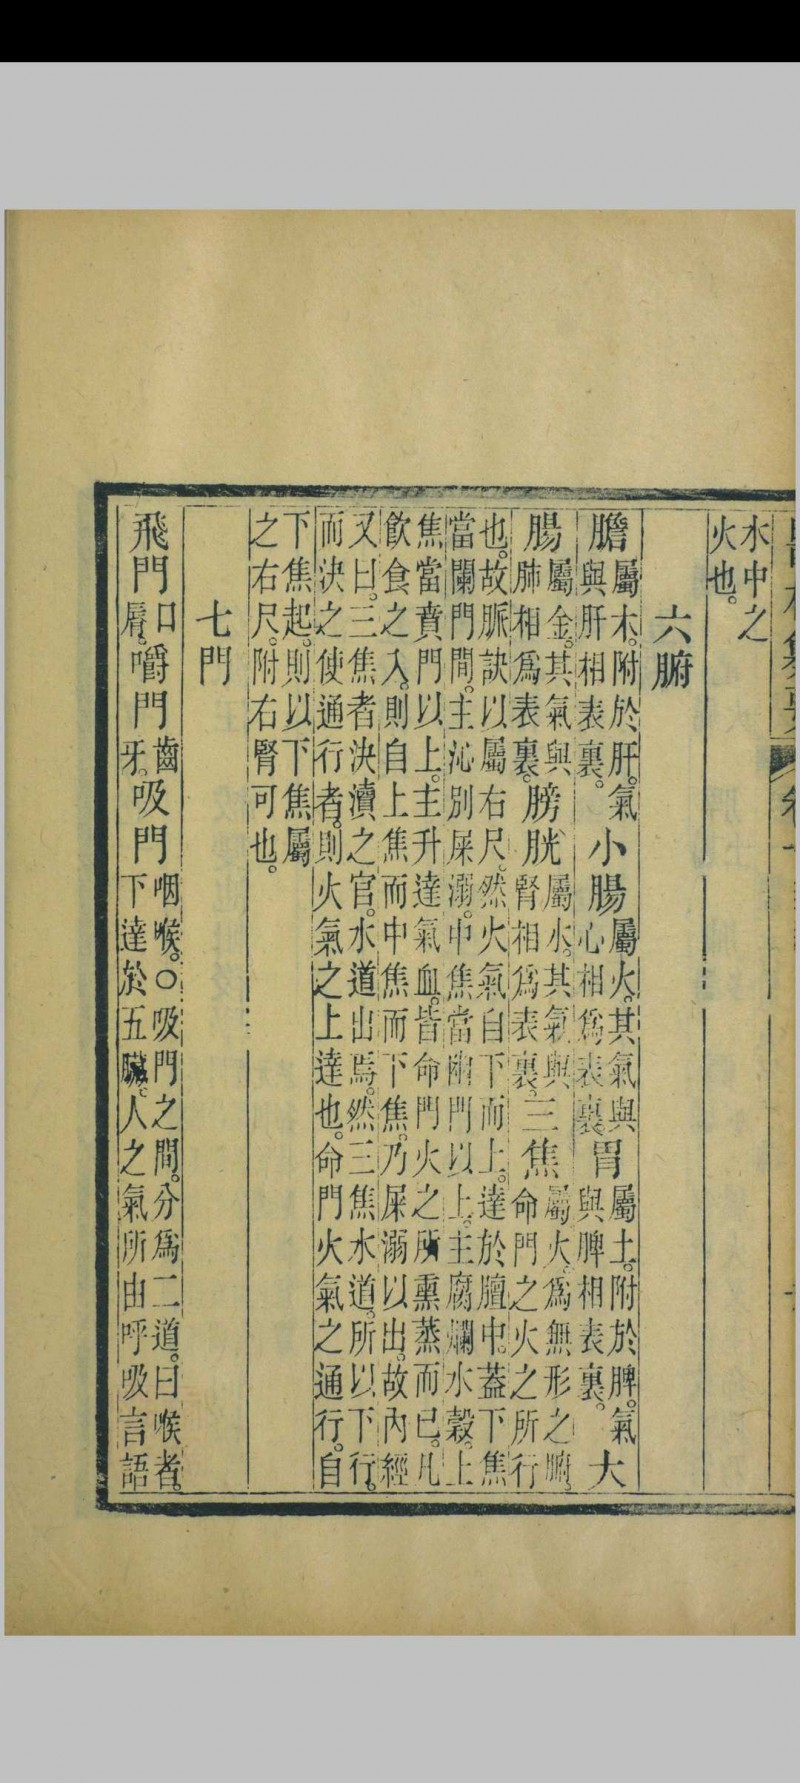 水中之
火也。
六腑
膽屬木。附於肝。氣與肝相表裏。小腸屬火。其氣與心相爲表裏。胃屬土。附於脾。氣與脾相表裏。大
腸屬金。其氣與肺相爲表裏。膀胱屬水。其氣與腎相爲表裏。三焦屬火。爲無形之腑。命門之火之所行
也。故脈訣以屬右尺。然火氣自下而上。達於膻中。蓋下焦
當闌門間。主沁別屎溺。中焦當幽門以上。主腐爛水穀。上
焦當賁門以上。主升達氣血。皆命門火之所熏蒸而已。凡
飲食之入。則自上焦而中焦而下焦。乃屎溺以出。故內經
又曰。三焦者決瀆之官。水道出焉。然三焦水道。所以下行。
而決之使通行者。則火氣之上達也。命門火氣之通行。自
下焦起。則以下焦屬
之右尺。附右腎可也。
七門
飛門口脣。嚼門齒牙。吸門咽喉。○吸門之間。分爲二道。曰喉者。下達於五臟。人之氣所由呼吸言語